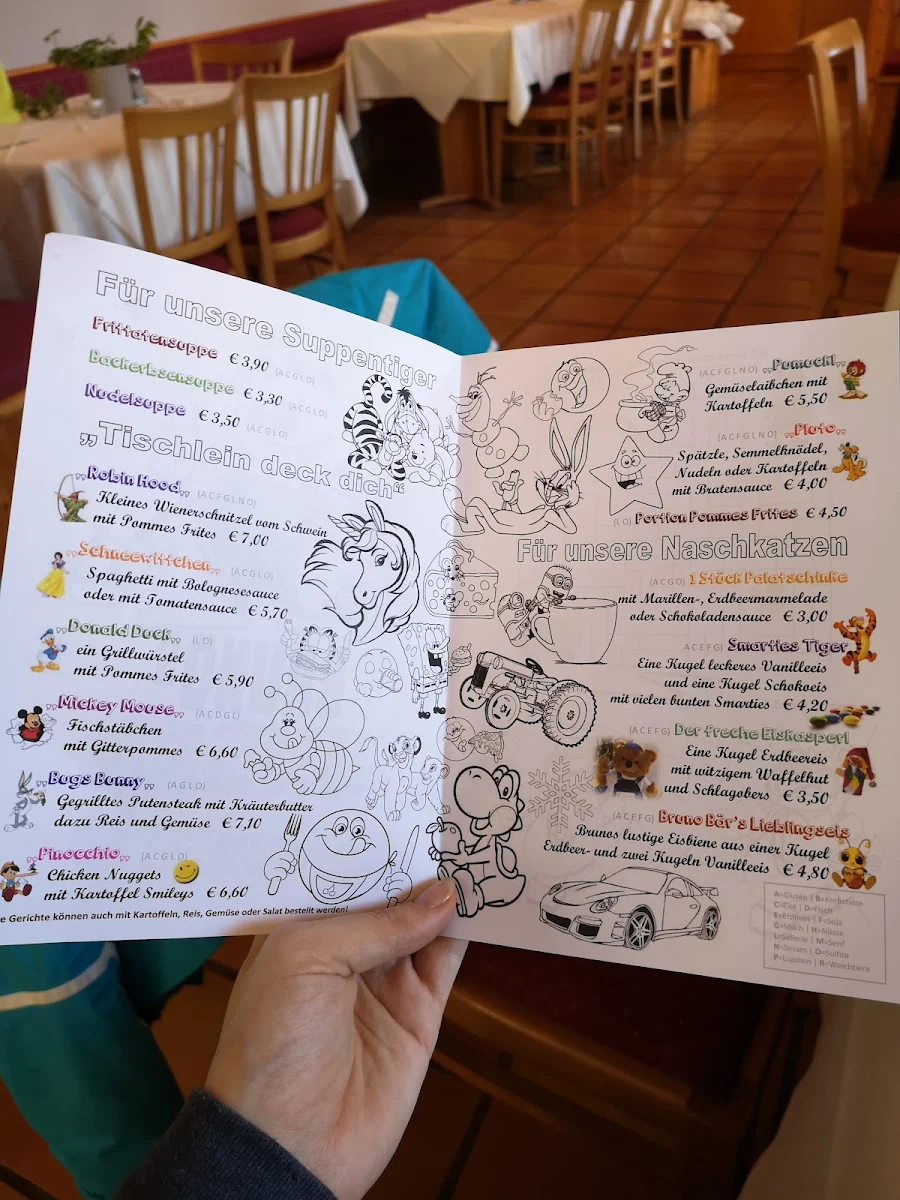 Für unsere Suppentiger
Frittatensuppe € 3,90 (A C G L O)
Backerbsensuppe € 3,30 (A C G L O)
Nudelsuppe € 3,50 (A C G L O)
„Tischlein deck dich“
„Robin Hood„ (A C F G L N O)
Kleines Wienerschnitzel vom Schwein
mit Pommes Frites € 7,00
„Schneewittchen„ (A C G L O)
Spaghetti mit Bolognesesauce
oder mit Tomatensauce € 5,70
„Donald Duck„ (L O)
ein Grillwürstel
mit Pommes Frites € 5,90
„Mickey Mouse„ (A C D G L)
Fischstäbchen
mit Gitterpommes € 6,60
„Bugs Bunny„ (A G L O)
Gegrilltes Putensteak mit Kräuterbutter
dazu Reis und Gemüse € 7,10
„Pinocchio„ (A C G L O)
Chicken Nuggets
mit Kartoffel Smileys € 6,60
e Gerichte können auch mit Kartoffeln, Reis, Gemüse oder Salat bestellt werden!
(A C F G L N O) „Pumuckl„
Gemüselaibchen mit
Kartoffeln € 5,50
(A C F G L N O) „Pluto„
Spätzle, Semmelknödel,
Nudeln oder Kartoffeln
mit Bratensauce € 4,00
(L O) Portion Pommes Frites € 4,50
Für unsere Naschkatzen
(A C G O) 1 Stück Palatschinke
mit Marillen-, Erdbeermarmelade
oder Schokoladensauce € 3,00
A C E F G) Smarties Tiger
Eine Kugel leckeres Vanilleeis
und eine Kugel Schokoeis
mit vielen bunten Smarties € 4,20
(A C E F G) Der freche Eiskasperl
Eine Kugel Erdbeereis
mit witzigem Waffelhut
und Schlagobers € 3,50
(A C E F G) Bruno Bär's Lieblingseis
Brunos lustige Eisbiene aus einer Kugel
Erdbeer- und zwei Kugeln Vanilleeis € 4,80
A=Gluten | B=Krebstiere
C=Eier | D=Fisch
E=Erdnuss | F=Soja
G=Milch | H=Nüsse
L=Sellerie | M=Senf
N=Sesam | O=Sulfite
P=Lupinen | R=Weichtiere